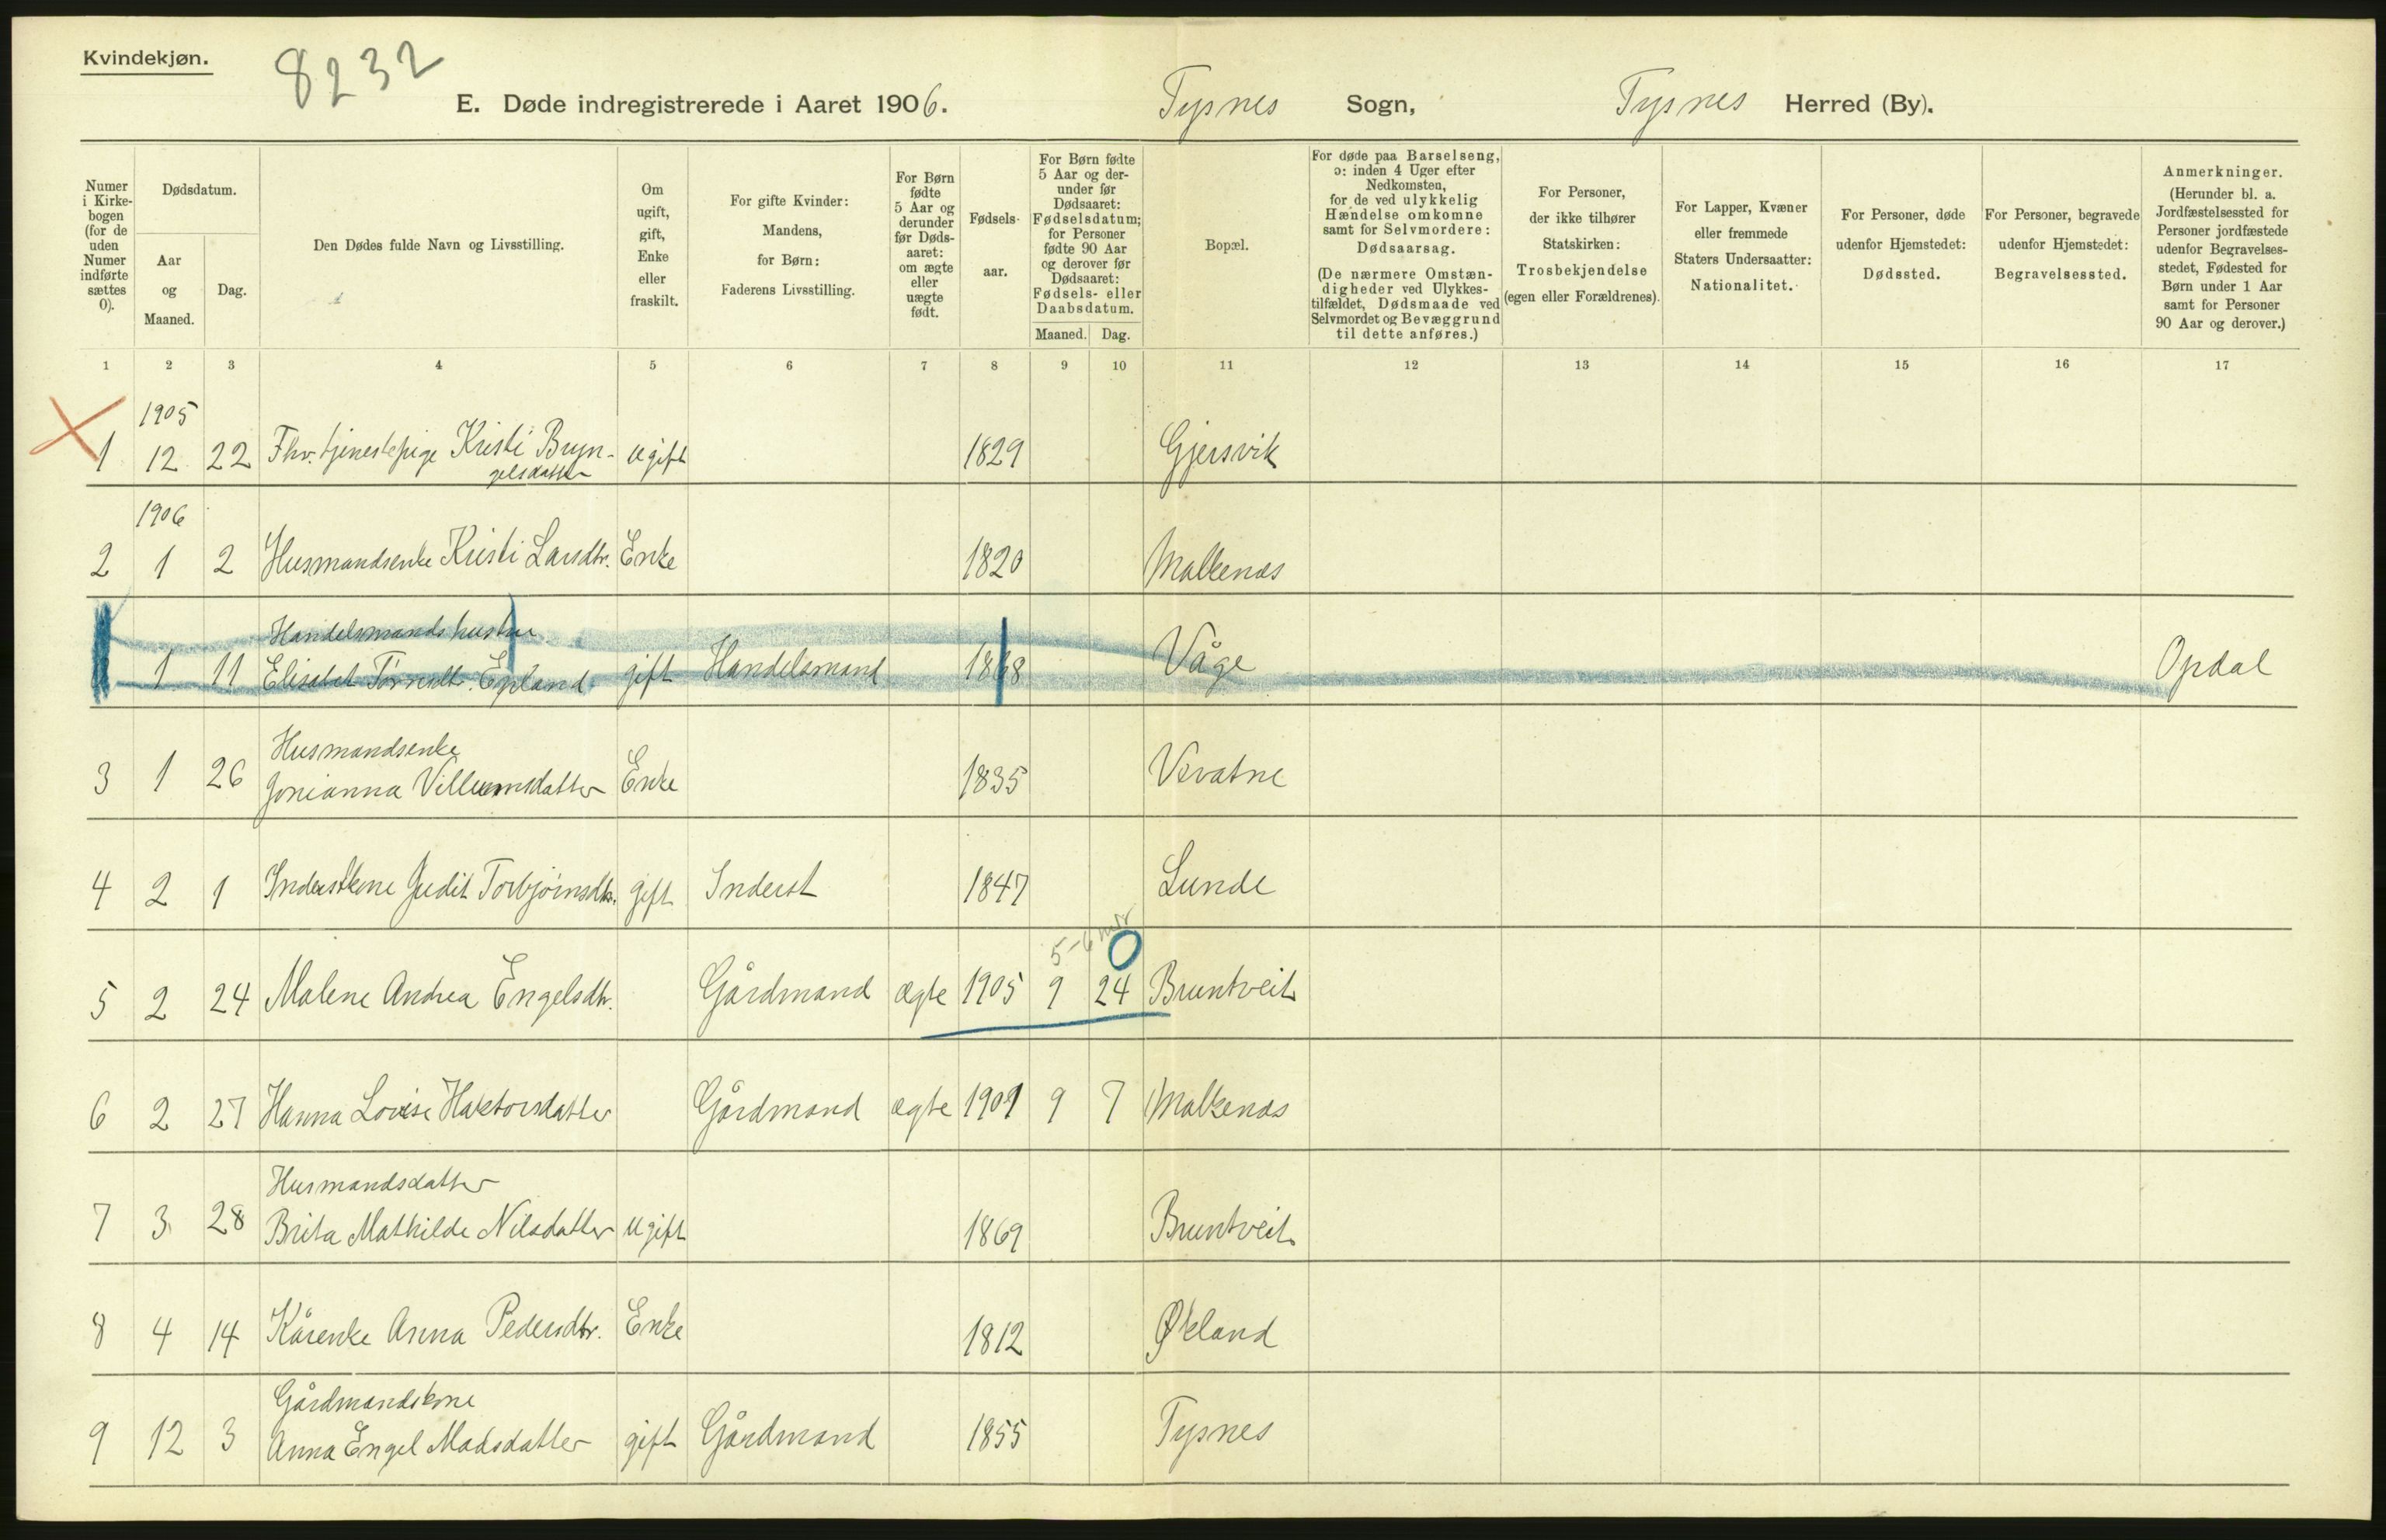 Kvindekjøn.
8232
E. Døde indregistrerede i Aaret 1906. Tysnes Sogn, Tysnes Herred (By).
Numer i Kirke-bogen (for de uden Numer indførte sættes 0).
Dødsdatum.
Aar og Maaned.
Dag.
Den Dødes fulde Navn og Livsstilling.
Om ugift, gift, Enke eller fraskilt.
For gifte Kvinder: Mandens, for Børn: Faderens Livsstilling.
For Børn fødte 5 Aar og derunder før Døds-aaret: om ægte eller uægte født.
Fødsels-aar.
For Børn fødte 5 Aar og der-under før Dødsaaret: Fødselsdatum; for Personer fødte 90 Aar og derover før Dødsaaret: Fødsels- eller Daabsdatum.
Maaned. Dag.
Bopæl.
For døde paa Barselseng, ɔ: inden 4 Uger efter Nedkomsten, for de ved ulykkelig Hændelse omkomne samt for Selvmordere: Dødsaarsag.
(De nærmere Omstæn-digheder ved Ulykkes-tilfældet, Dødsmaade ved Selvmordet og Bevæggrund til dette anføres.)
For Personer, der ikke tilhører Statskirken: Trosbekjendelse (egen eller Forældrenes).
For Lapper, Kvæner eller fremmede Staters Undersaatter: Nationalitet.
For Personer, døde udenfor Hjemstedet: Dødssted.
For Personer, begravede udenfor Hjemstedet: Begravelsessted.
Anmerkninger. (Herunder bl. a. Jordfæstelsessted for Personer jordfæstede udenfor Begravelses-stedet, Fødested for Børn under 1 Aar samt for Personer 90 Aar og derover.)
1 2 3 4 5 6 7 8 9 10 11 12 13 14 15 16 17
1905
1 12 22 Fhv. tjenestepige Kristi Bryn- ugift 1829 Gjersvik
gelsdatter
1906
2 1 2 Husmandsenke Kristi Larsdtr. Enke 1820 Malkenes
Handelsmands hustru
1 11 Elisabet gift Handelsmand 1868 Våge Opdal
Husmandsenke
3 1 26 Jonianna Villumsdatter Enke 1835 Vevatne
4 2 1 Inderstkone Judit Torbjörnsdtr. gift Inderst 1847 Lunde
5-6 mdr
5 2 24 Malene Andrea Engelsdtr. Gårdmand ægte 1905 9 24 Bruntveit
6 2 27 Hanna Lovise Haktorsdatter Gårdmand ægte 1901 9 7 Malkenes
Husmandsdatter
7 3 28 Brita Mathilde Nilsdatter ugift 1869 Bruntveit
8 4 14 Kårenke Anna Pedersdtr. Enke 1812 Økland
Gårdmandskone
9 12 3 Anna Engel Madsdatter gift Gårdmand 1855 Tysnes